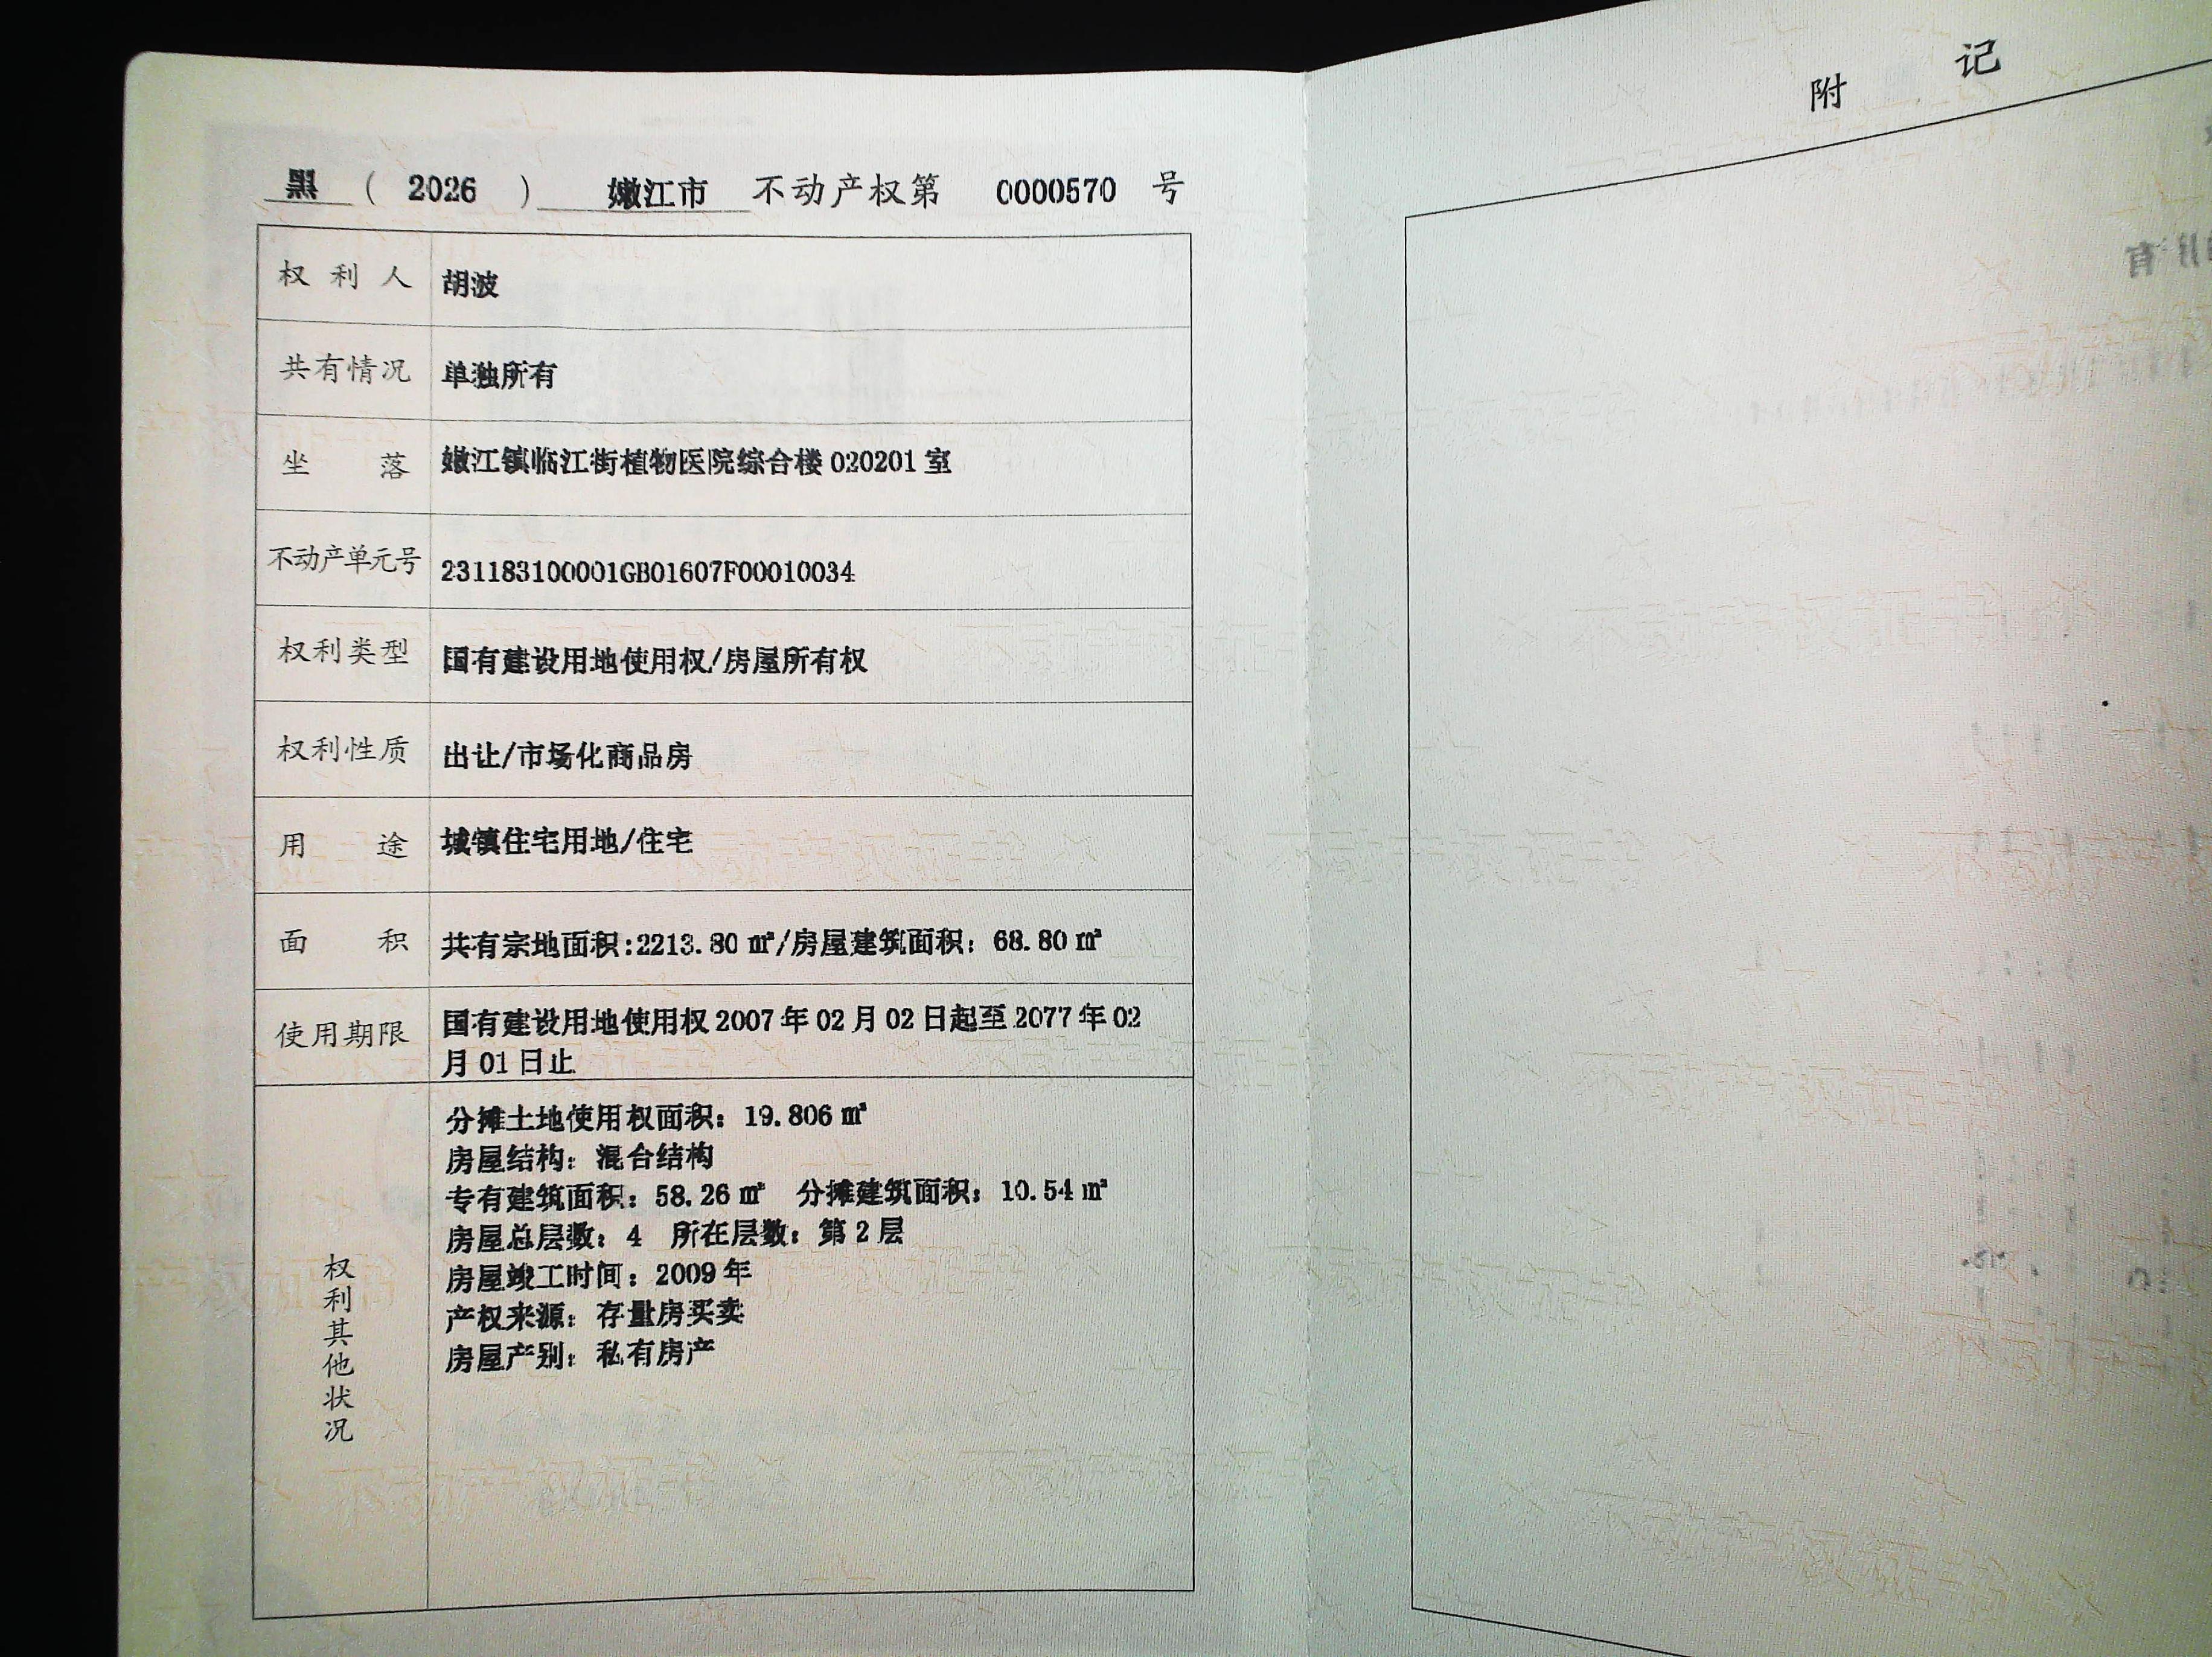 黑 ( 2026 ) 嫩江市 不动产权第 0000570 号
权利人 胡波
共有情况 单独所有
坐落 嫩江镇临江街植物医院综合楼 020201 室
不动产单元号 231183100001GB01607F00010034
权利类型 国有建设用地使用权/房屋所有权
权利性质 出让/市场化商品房
用途 城镇住宅用地/住宅
面积 共有宗地面积:2213.80 ㎡/房屋建筑面积: 68.80 ㎡
使用期限 国有建设用地使用权 2007 年 02 月 02 日起至 2077 年 02
月 01 日止
权利其他状况
分摊土地使用权面积: 19.806 ㎡
房屋结构: 混合结构
专有建筑面积: 58.26 ㎡ 分摊建筑面积: 10.54 ㎡
房屋总层数: 4 所在层数: 第 2 层
房屋竣工时间: 2009 年
产权来源: 存量房买卖
房屋产别: 私有房产
附记